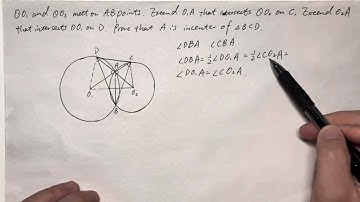 ⊙O₁ and ⊙O₂ meet on AB points. Extend O₁A that intersects ⊙O₂ on C. Extend O₂A
that intersects ⊙O₁ on D. Prove that A is incenter of ∠BCD.
∠DBA ∠CBA
∠DBA = ½∠DO₁A = ½∠CO₂A =
∠DO₁A = ∠CO₂A.
D
C
A
O₁
O₂
B